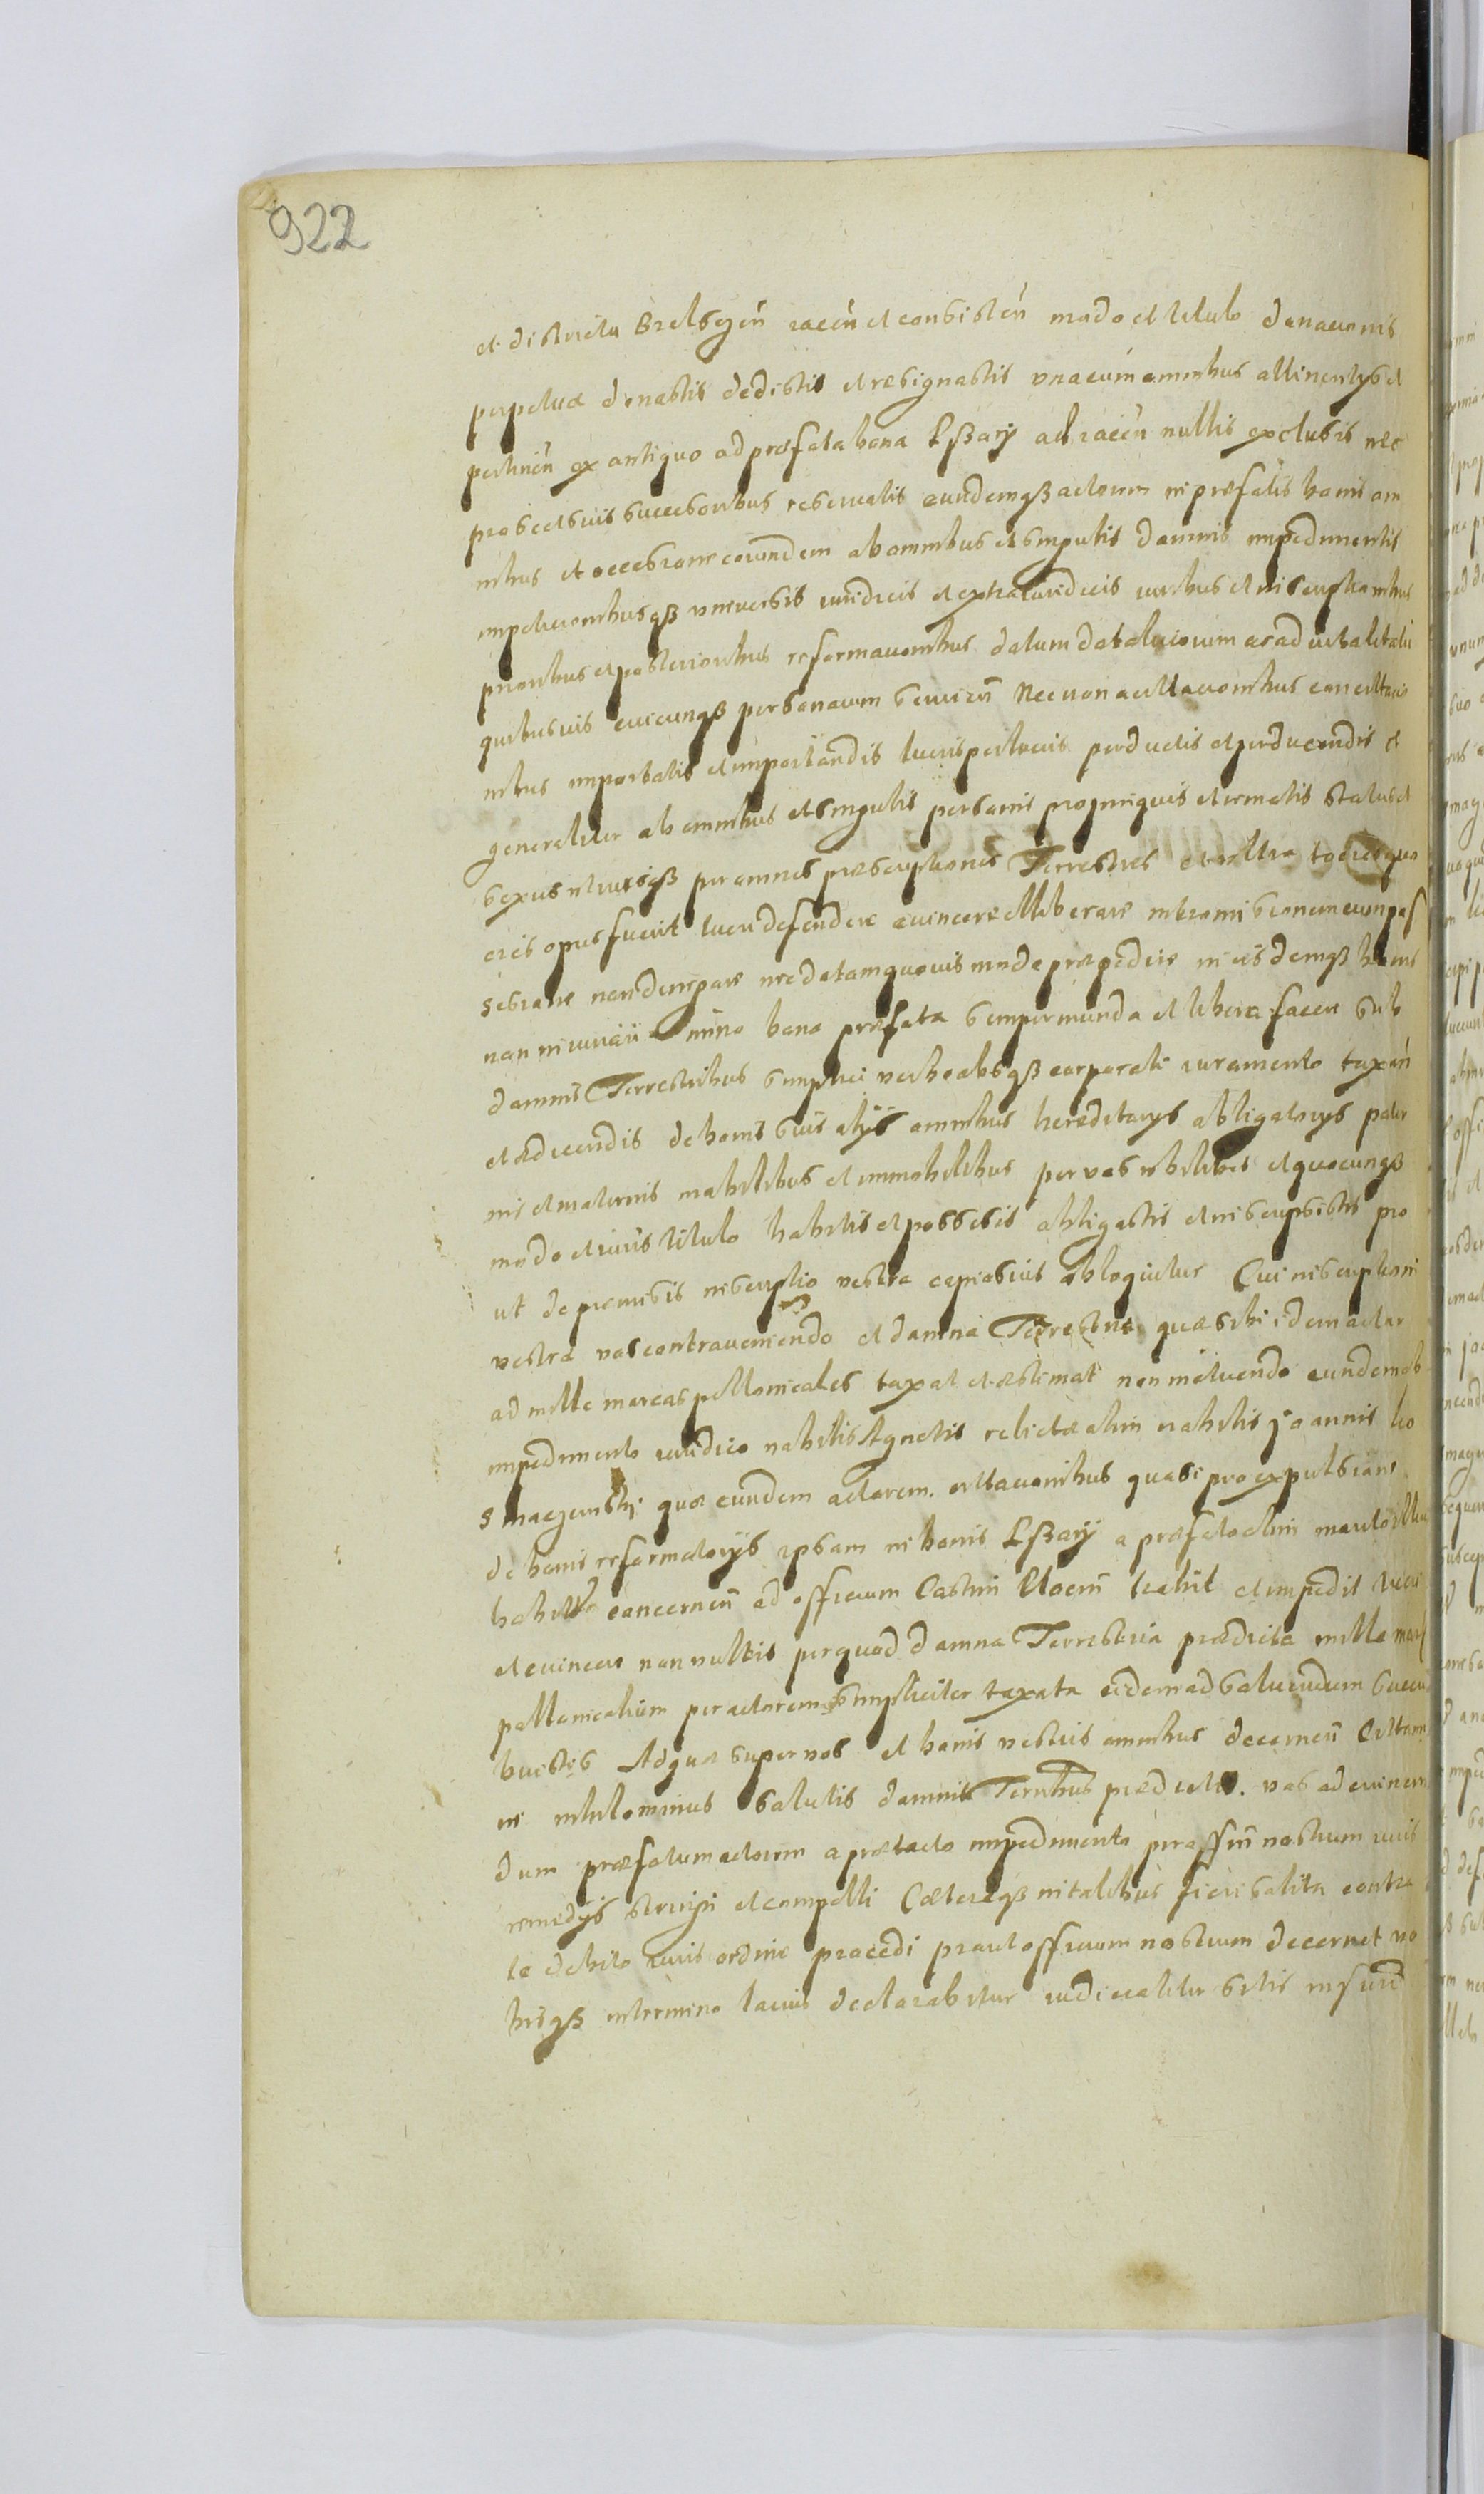 922
et districtu Brelsczen̄ iacen̄ et consisten̄ modo et titulo donacionis
perpetuæ donastis dedistis et resignastis vnacum omnibus attinentijs et
pertinen̄ ex antiquo ad præfata bona Lssary adiacen̄ nullis exclusis nec
pro se et suis successoribus reseruatis eundemqß actorem in præfatis bonis om
nibus et occasione eorundem ab omnibus et singulis damnis impedimentis
impeticionibusqß vniuersis iuridicis et extraiuridicis iuribus et inscriptionibus
prioribus et posterioribus reformacionibus datum dotaliciorum ac aduitalitatū
quibusuis cuicunqß personarum seruien̄ Necnon acittacionibus concitacio
nibus importatis et importandis lucris perlucris perductis et perducendis et
generaliter ab omnibus et singulis personis propinquis et remotis status et
sexus vtriusqß per omnes præscriptiones Terrestres et vltra tocies quo
cies opus fuerit tueri defendere euincere et liberare intromissionem eum pos
sessione non denegare nec datam quouis modo præpedire in eisdemqß bonis
non iniuriari imo bona præfata semper munda et libera facere sub
damnis Terrestribus simplici verbo absqß corporali iuramento taxan̄
et edicendis de bonis suis alijs omnibus hereditarijs obligatorijs pater
nis et maternis mobilibus et immobilibus per vos vbilibet et quocunqß
modo et iuris titulo habitis et possessis obligastis et inscripsistis pro
ut de præmissis inscriptio vestra copiosius obloquitur Cui inscriptioni
vestræ vos contraueniendo et damna Terrestria quæ sibi idem actor
ad mille marcas pollonicales taxat et æstimat non metuendo eundem ab
impedimento iuridico nobilis Agnetis relictæ olim nobilis Joannis
quæ eundem actorem cittacionibus quasi pro expulsione
de bonis reformatorijs ipsam in bonis Lssary a præfato olim marito illius
habitis concernen̄ ad officium Castrn̄ trahit et impedit tueri
et euincere non vultis per quod damna Terrestria prædicta mille mar
pollonicalium per actorem simpliciter taxata eidem ad soluendum succu
buistis Ad quæ super vos et bonis vestris omnibus decernen̄ Cittam
ni nihilominus solutis damnis Terribus prædictis. vos ad euincen
dum præfatum actorem a prætacto impedimento per offin̄ nostrum iuris
remedijs stringi et compelli Cæteraqß in talibus fieri solita contra
te debito iuris ordine procedi prout officium nostrum decernet vo
bisqß in termino lacius declarabitur iudicialiter Sitis in